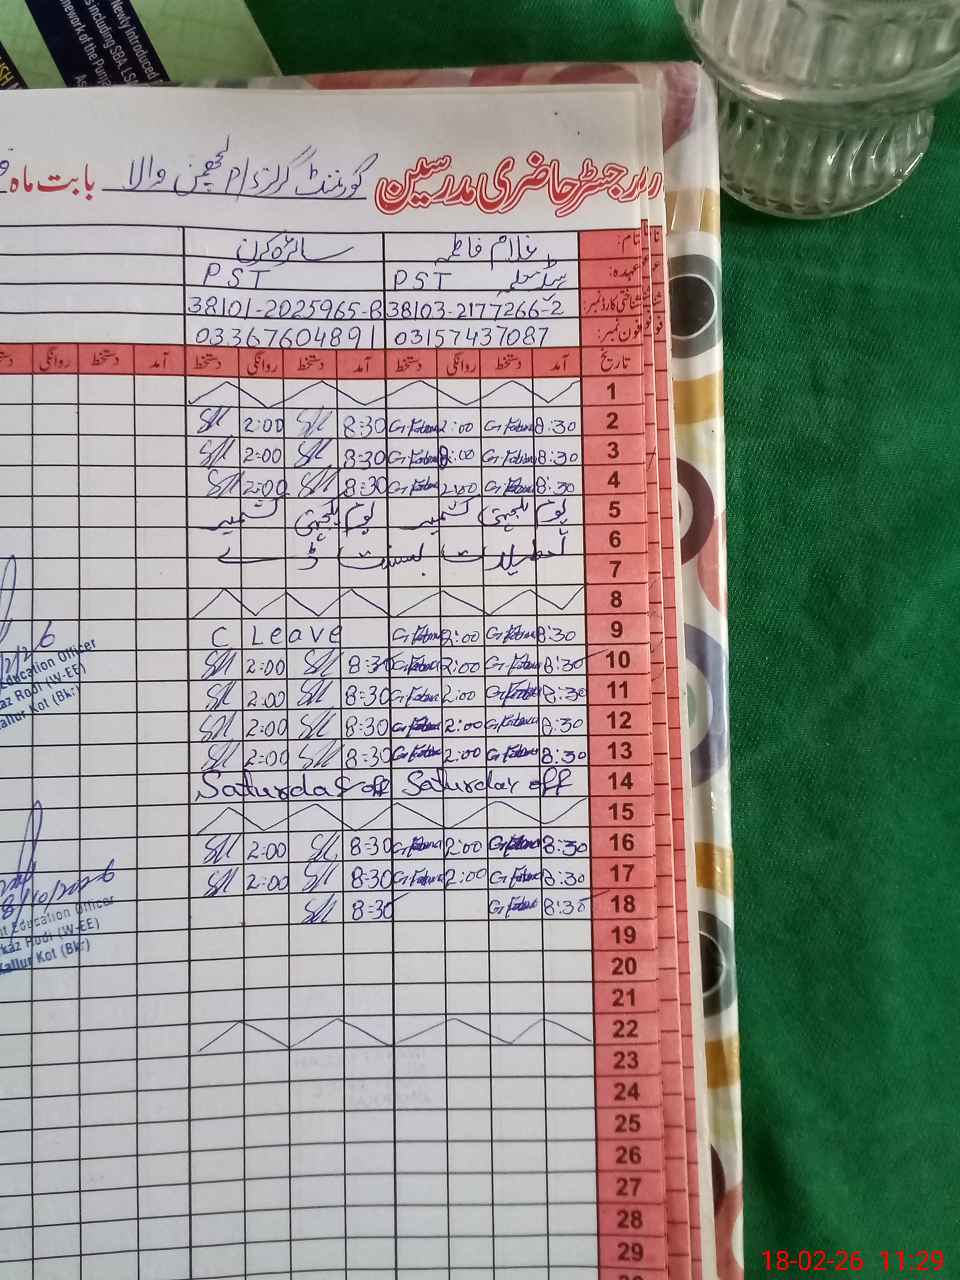 Newly Introduced
s including SBA, LS
mework of the Pun
As
رجسٹر حاضری مدرسین گورنمنٹ گرلز والا بابت ماہ
نام: غلام فاطمہ سائرہ کرن
عہدہ: PST PST
شناختی کارڈ نمبر: 38103-2177266-2 38101-2025965-8
فون نمبر: 03157437087 03367604891
تاریخ آمد دستخط روانگی دستخط آمد دستخط روانگی دستخط آمد دستخط روانگی
1
2 8:30 G.Fatima 2:00 G.Fatima 8:30 2:00
3 8:30 G.Fatima 2:00 G.Fatima 8:30 2:00
4 8:30 G.Fatima 2:00 G.Fatima 8:30 2:00
5 یوم یکجہتی کشمیر یوم یکجہتی کشمیر
6 تعطیلات بسنت ڈے
7
8
9 8:30 G.Fatima 2:00 G.Fatima C Leave
10 8:30 G.Fatima 2:00 G.Fatima 8:30 2:00
11 8:30 G.Fatima 2:00 G.Fatima 8:30 2:00
12 8:30 G.Fatima 2:00 G.Fatima 8:30 2:00
13 8:30 G.Fatima 2:00 G.Fatima 8:30 2:00
14 Saturday off Saturday off
15
16 8:30 G.Fatima 2:00 G.Fatima 8:30 2:00
17 8:30 G.Fatima 2:00 G.Fatima 8:30 2:00
18 8:30 G.Fatima 8:30
19
20
21
22
23
24
25
26
27
28
29
Education Officer
az Rodi (W-EE)
allur Kot (Bkr)
nt Education Officer
rkaz Rodi (W-EE)
Kallur Kot (Bkr)
18-02-26 11:29